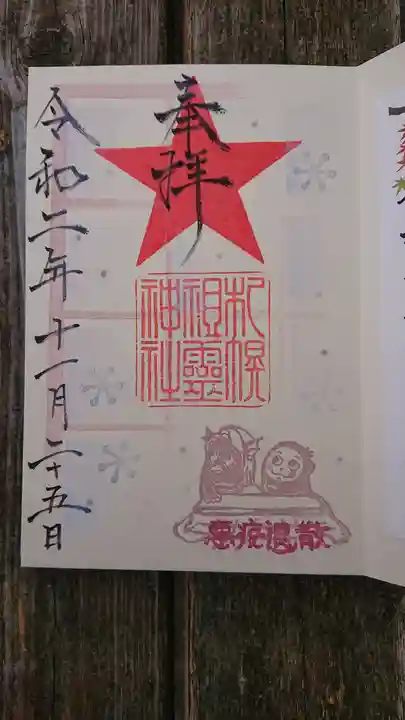 奉拝
札幌
祖霊
神社
悪疫退散
令和二年十一月二十五日